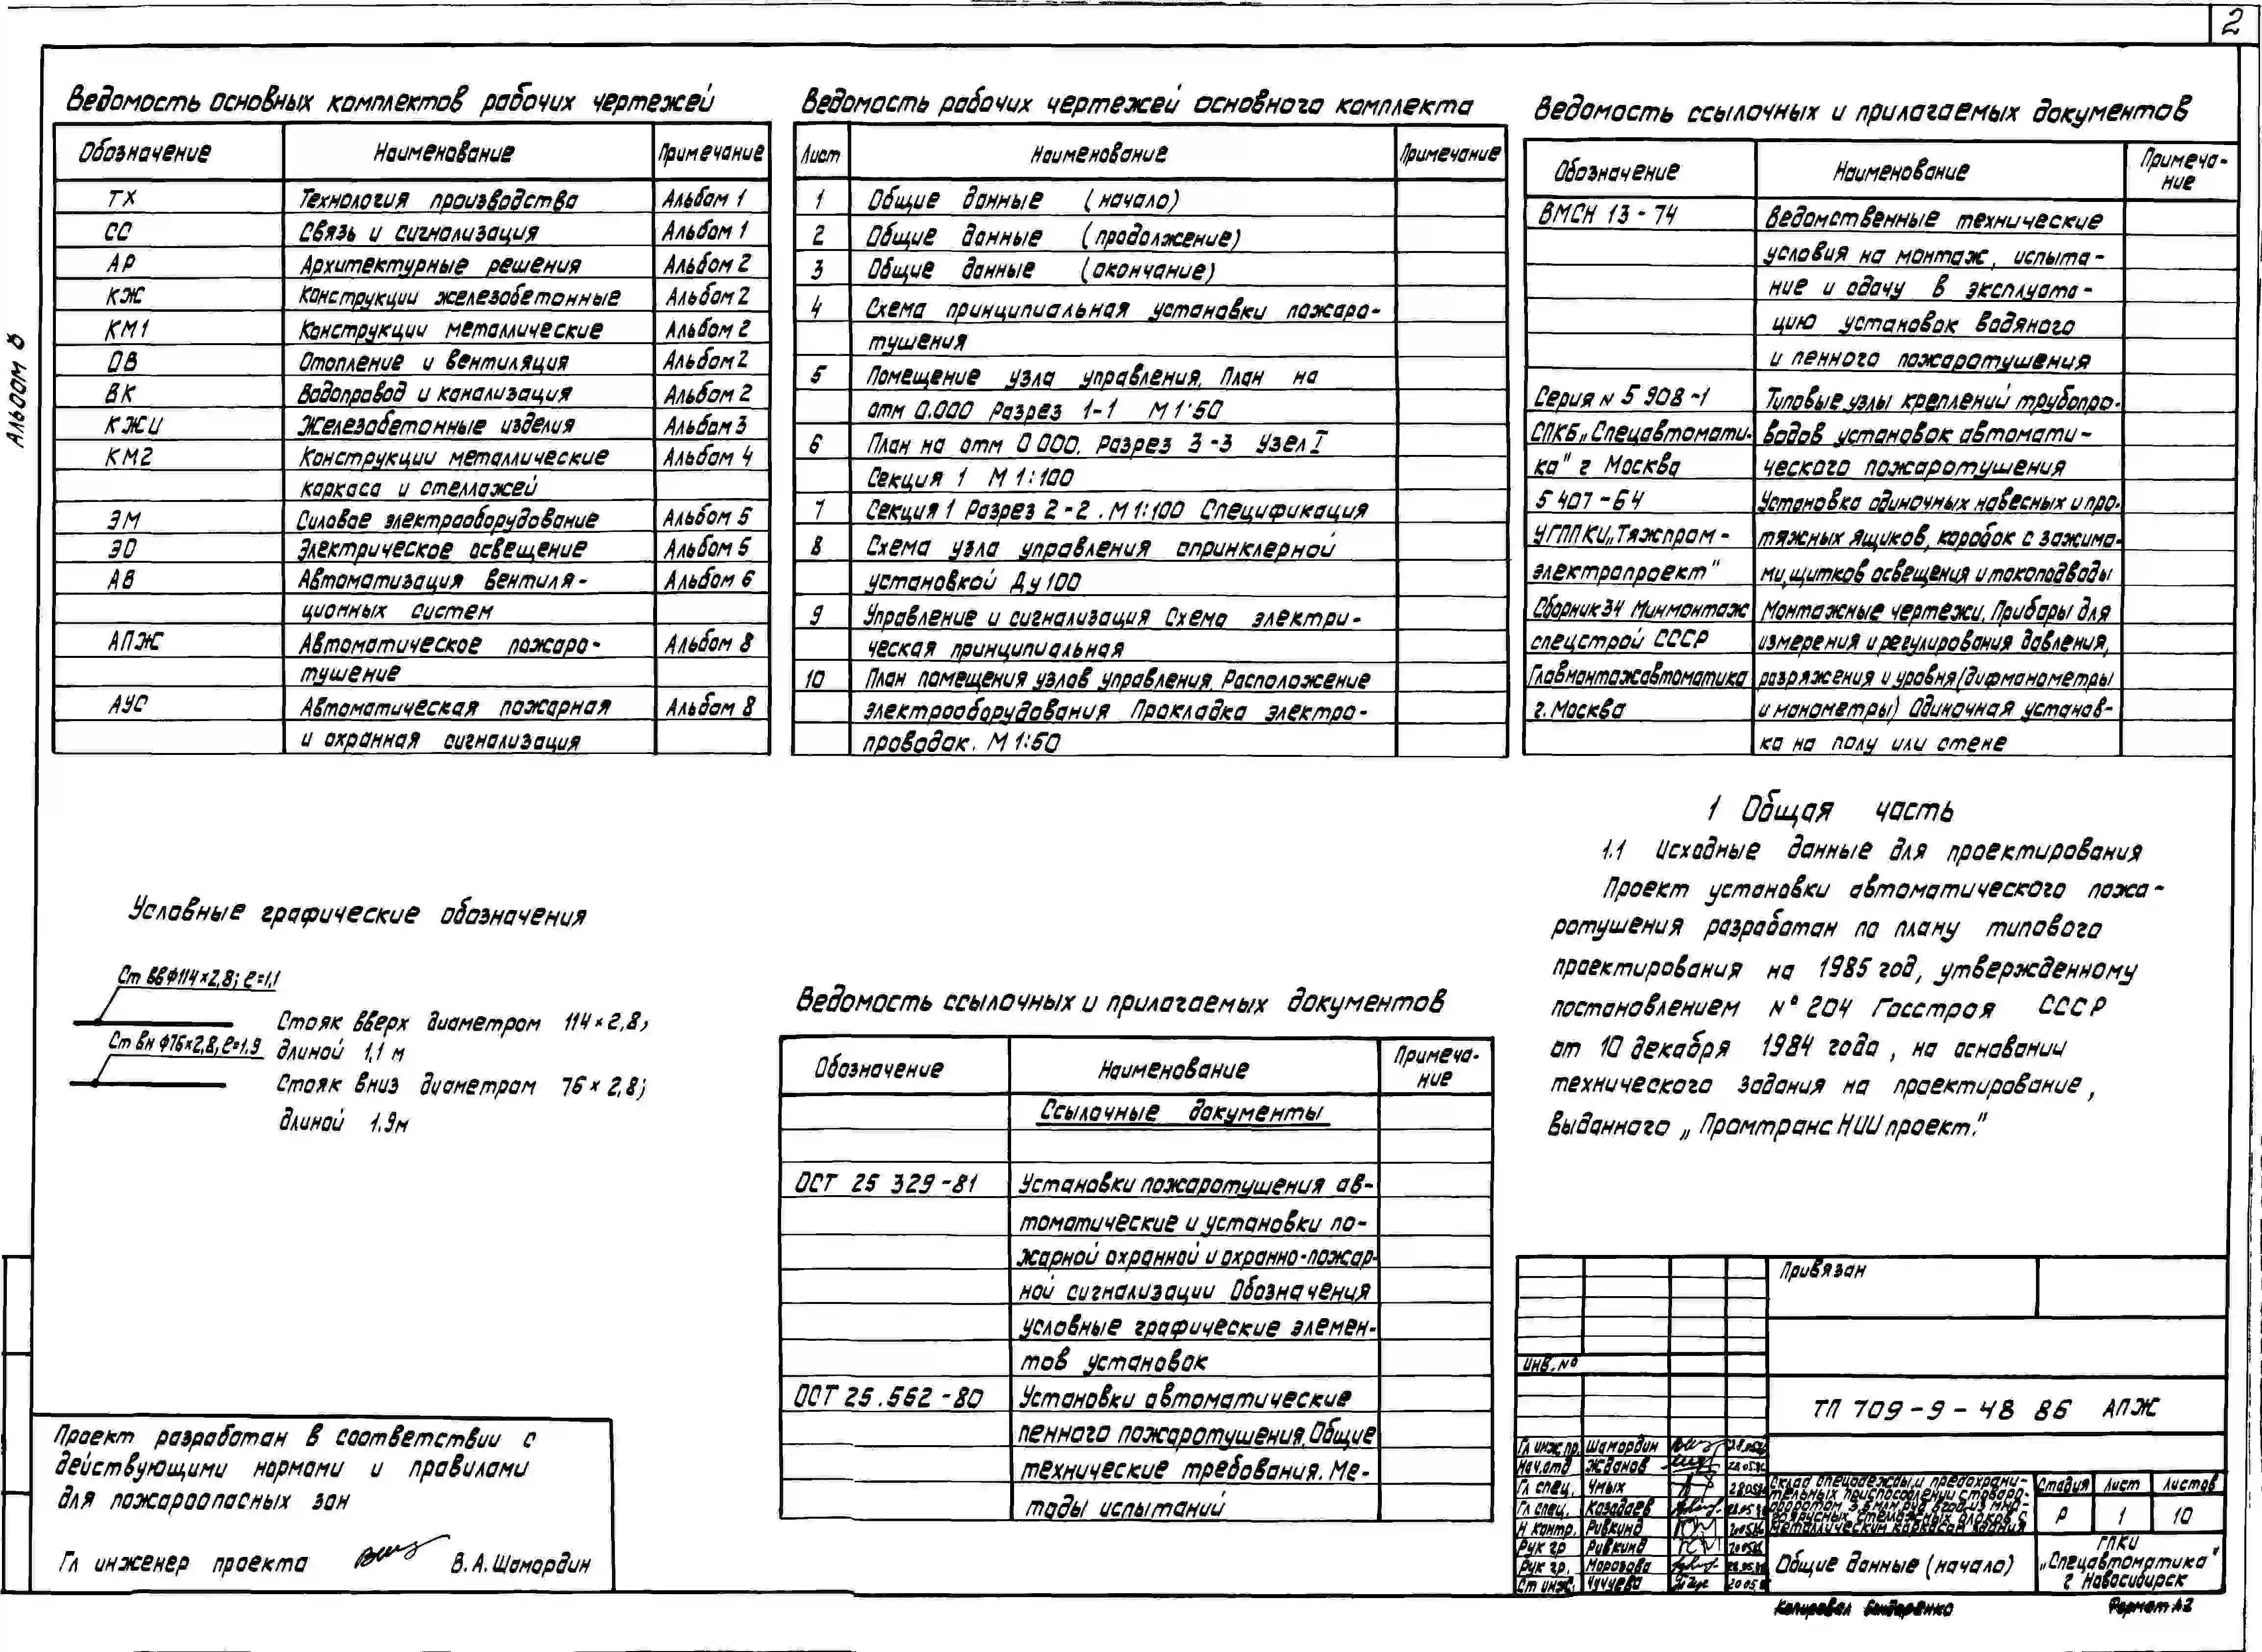 2
Альбом 8
Ведомость основных комплектов рабочих чертежей
Обозначение Наименование Примечание
ТХ Технология производства Альбом 1
СС Связь и сигнализация Альбом 1
АР Архитектурные решения Альбом 2
КЖ Конструкции железобетонные Альбом 2
КМ1 Конструкции металлические Альбом 2
ОВ Отопление и вентиляция Альбом 2
ВК Водопровод и канализация Альбом 2
КЖИ Железобетонные изделия Альбом 3
КМ2 Конструкции металлические Альбом 4
каркаса и стеллажей
ЭМ Силовое электрооборудование Альбом 5
ЭО Электрическое освещение Альбом 5
АВ Автоматизация вентиля-
Альбом 6
ционных систем
АПЖ Автоматическое пожаро-
Альбом 8
тушение
АУС Автоматическая пожарная Альбом 8
и охранная сигнализация
Ведомость рабочих чертежей основного комплекта
Лист Наименование Примечание
1 Общие данные (начало)
2 Общие данные (продолжение)
3 Общие данные (окончание)
4 Схема принципиальная установки пожаро-
тушения
5 Помещение узла управления. План на
отм 0.000 Разрез 1-1 М 1:50
6 План на отм 0 000. Разрез 3-3 Узел I
Секция 1 М 1:100
7 Секция 1 Разрез 2-2. М 1:100 Спецификация
8 Схема узла управления спринклерной
установкой Ду 100
9 Управление и сигнализация Схема электри-
ческая принципиальная
10 План помещения узлов управления. Расположение
электрооборудования Прокладка электро-
проводок. М 1:50
Ведомость ссылочных и прилагаемых документов
Обозначение Наименование Примеча-
ние
ВМСН 13-74 Ведомственные технические
условия на монтаж, испыта-
ние и сдачу в эксплуата-
цию установок водяного
и пенного пожаротушения
Серия N 5 908-1 Типовые узлы креплений трубопро-
СПКБ „Спецавтомати- водов установок автомати-
ка" г Москва ческого пожаротушения
5 407-64 Установка одиночных навесных и про-
УГППКИ „Тяжпром- тяжных ящиков, коробок с зажима-
электропроект" ми, щитков освещения и токоподводы
Сборник 34 Минмонтаж Монтажные чертежи. Приборы для
спецстрой СССР измерения и регулирования давления,
Главмонтажавтоматика разряжения и уровня (дифманометры
г. Москва и манометры) Одиночная установ-
ка на полу или стене
Условные графические обозначения
Ст вв Ф114×2,8; ℓ=1,1
Стояк вверх диаметром 114×2,8;
длиной 1,1 м
Ст вн Ф76×2,8, ℓ=1.9
Стояк вниз диаметром 76×2,8;
длиной 1.9м
Ведомость ссылочных и прилагаемых документов
Обозначение Наименование Примеча-
ние
Ссылочные документы
ОСТ 25 329-81 Установки пожаротушения ав-
томатические и установки по-
жарной охранной и охранно-пожар-
ной сигнализации Обозначения
условные графические элемен-
тов установок
ОСТ 25.562-80 Установки автоматические
пенного пожаротушения. Общие
технические требования. Ме-
тоды испытаний
1 Общая часть
1.1 Исходные данные для проектирования
Проект установки автоматического пожа-
ротушения разработан по плану типового
проектирования на 1985 год, утвержденному
постановлением № 204 Госстроя СССР
от 10 декабря 1984 года, на основании
технического задания на проектирование,
выданного „ПромтрансНИИпроект."
Проект разработан в соответствии с
действующими нормами и правилами
для пожароопасных зон
Гл инженер проекта В. А. Шамордин
Привязан
Инв. №
ТП 709-9-48 86 АПЖ
Гл инж пр. Шамордин
Нач. отд Жданов
Гл спец. Чмых
Гл спец. Казадаев
Н контр. Ривкинд
Рук гр Ривкинд
Рук гр. Морозова
Ст инж. Чучуева 20 05
Склад спецодежды и предохрани-
тельных приспособлений с товаро-
оборотом 3,5 млн. руб в год из мно-
гоярусных стеллажных блоков с
металлическим каркасом здания
Стадия Лист Листов
Р 1 10
Общие данные (начало)
ГПКИ
„Спецавтоматика"
г Новосибирск
Копировал Бондаренко Формат А2